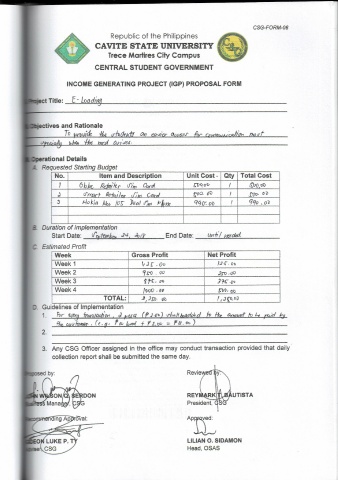 CSG-FORM-06
Republic of the Philippines
CAVITE STATE UNIVERSITY
Trece Martires City Campus
CENTRAL STUDENT GOVERNMENT
INCOME GENERATING PROJECT (IGP) PROPOSAL FORM
Project Title: E-Loading
Objectives and Rationale
To provide the students an easier access for communication most
specially when the need arises.
Operational Details
A. Requested Starting Budget
No. Item and Description Unit Cost Qty Total Cost
1 Globe Retailer Sim Card 500.00 1 500.00
2 Smart Retailer Sim Card 500.00 1 500.00
3 Nokia 105 Dual Sim Phone 990.00 1 990.00
B. Duration of Implementation
Start Date: September 24, End Date: until needed
C. Estimated Profit
Week Gross Profit Net Profit
Week 1
Week 2
Week 3
Week 4 1000.00
TOTAL:
D. Guidelines of Implementation
1. For every transaction, 2 pesos (₱2.00) shall be added to the amount to be paid by
the customer.
2.
3. Any CSG Officer assigned in the office may conduct transaction provided that daily
collection report shall be submitted the same day.
Proposed by: Reviewed by:
WILSON Q. SERDON REYMARK T. BAUTISTA
Business Manager, CSG President, CSG
Recommending Approval: Approved:
GIDEON LUKE P. TY LILIAN O. SIDAMON
Adviser, CSG Head, OSAS